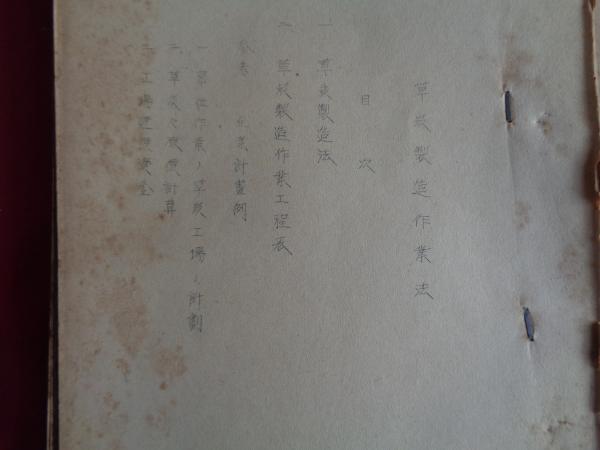 草炭製造作業法
目次
一 草炭製造法
二 草炭製造作業工程表
参考 企業計畫例
一 単位作業ノ草炭工場ノ計劃
二 草炭ノ原價計算
三 工場建設資金